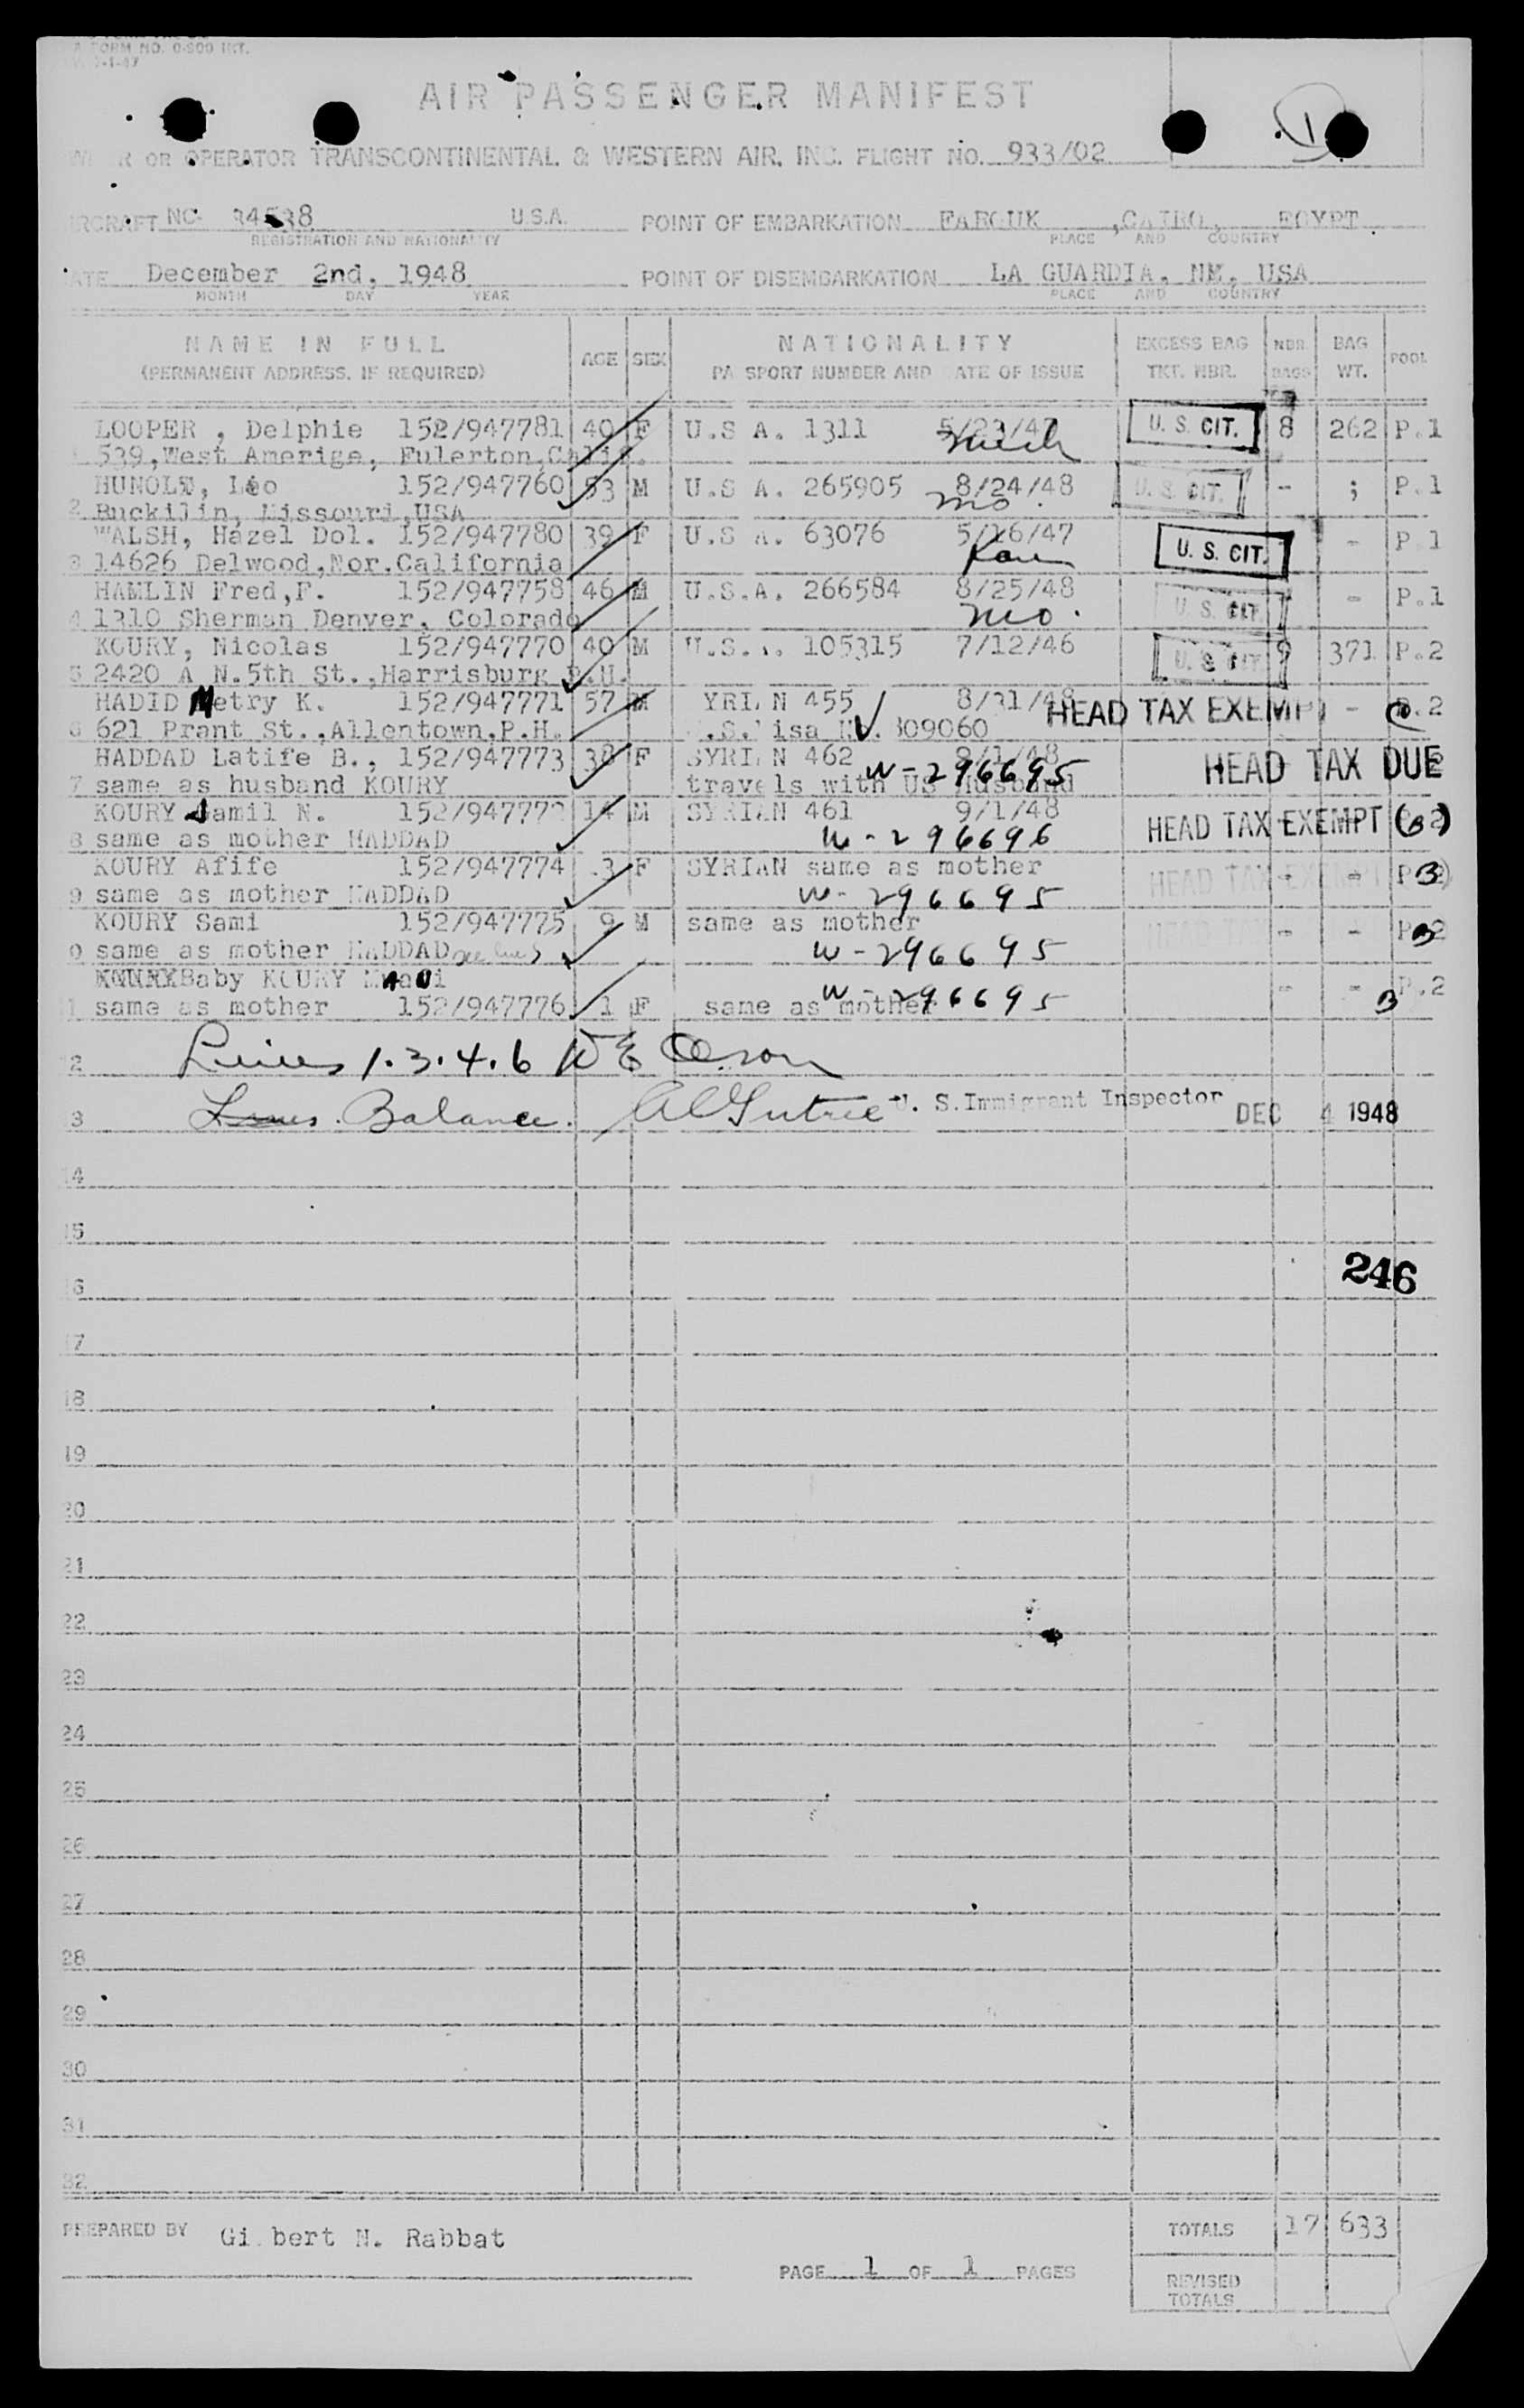 A FORM NO. 0-800 INT.
AIR PASSENGER MANIFEST
OR OPERATOR TRANSCONTINENTAL & WESTERN AIR, INC. FLIGHT NO. 933/02
AIRCRAFT NC- U.S.A. POINT OF EMBARKATION FAROUK ,CAIRO, EGYPT
REGISTRATION AND NATIONALITY PLACE AND COUNTRY
DATE December 2nd, 1948 POINT OF DISEMBARKATION LA GUARDIA, NY, USA
MONTH DAY YEAR PLACE AND COUNTRY
NAME IN FULL AGE SEX NATIONALITY EXCESS BAG NBR. BAG POOL
(PERMANENT ADDRESS, IF REQUIRED) PASSPORT NUMBER AND DATE OF ISSUE TKT. NBR. BAGS WT.
LOOPER , Delphie 152/947781 40 F U.S A. 1311 5/23/47 U. S. CIT. 8 262 P.1
539,West Amerige, Fulerton,Calif. Mich
HUNOLT, Leo 152/947760 53 M U.S A. 265905 8/24/48 U. S. CIT. - ; P.1
2 Buckilin, Missouri,USA Mo.
WALSH, Hazel Dol. 152/947780 39 F U.S A. 63076 5/16/47 U. S. CIT. - P.1
3 14626 Delwood,Nor.California Kan
HAMLIN Fred,F. 152/947758 46 M U.S.A. 266584 8/25/48 U. S. CIT - P.1
4 1310 Sherman Denver, Colorado Mo.
KOURY, Nicolas 152/947770 40 M U.S.A. 105315 7/12/46 U. S. CIT 9 371 P.2
5 2420 A N.5th St.,Harrisburg P.U.
HADID Metry K. 152/947771 57 M YRI N 455 8/31/48 HEAD TAX EXEMPT - P.2
6 621 Prant St.,Allentown,P.H. .S. isa 309060
HADDAD Latife B., 152/947773 38 F SYRI N 462 9/1/48 HEAD TAX DUE
7 same as husband KOURY travels with US husband W-296695
KOURY Jamil N. 152/947772 14 M SYRIAN 461 9/1/48 HEAD TAX EXEMPT (3)
8 same as mother HADDAD W-296696
KOURY Afife 152/947774 3 F SYRIAN same as mother HEAD TAX EXEMPT - P.2 3
9 same as mother HADDAD W-296695
KOURY Sami 152/947775 9 M same as mother HEAD TAX - - P.2 3
0 same as mother HADDAD W-296695
Baby KOURY - - P.2
11 same as mother 152/947776 1 F same as mother W-296695 3
12 Lines 1.3.4.6 W E Olson
13 Lines. Balance. U. S. Immigrant Inspector DEC 4 1948
14
15
246
16
17
18
19
20
21
22
23
24
25
26
27
28
29
30
31
32
PREPARED BY Gi bert N. Rabbat TOTALS 17 633
PAGE 1 OF 1 PAGES
REVISED
TOTALS